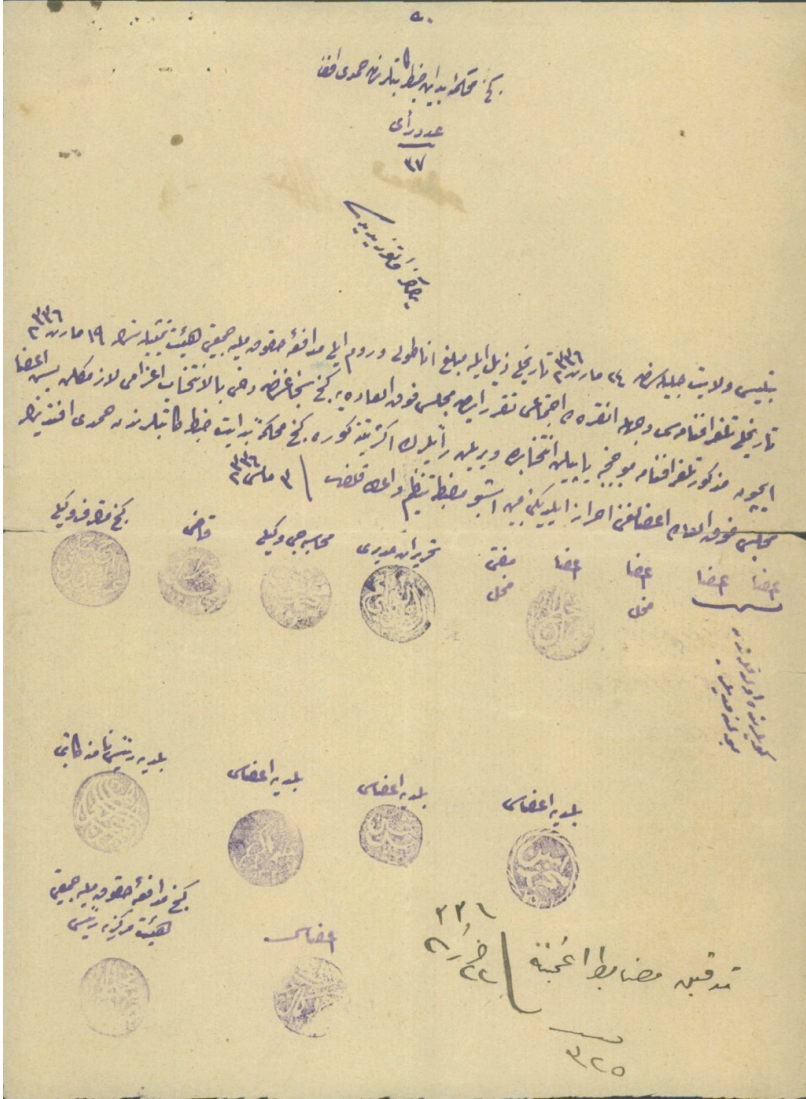 ٥٠
كنج محكمهٔ بدايت ضبط كاتبلرندن حمدى افندى
عدد رأى
٣٧
يالكز اوتوز يديدر
بتليس ولايت جليله‌سنك ٢٤ مارت ٣٣٦ تاريخلى ذيل ايله مبلغ اناطولى و روم ايلى مدافعهٔ حقوق مليه جمعيتى هيئت تمثيليه‌سنك ١٩ مارت ٣٣٦
تاريخلى تلغرافنامه‌سى وجهله انقره‌ده اجتماعى تقرر ايدن مجلس فوق العاده‌يه كنج سنجاغندن دخى بالانتخاب اعزامى لازمكلن بش اعضا
ايچون مذكور تلغرافنامه موجبنجه ياپيلان انتخابده ويريلن رأيلرك اكثريتنى كنج محكمهٔ بدايت ضبط كاتبلرندن حمدى افندينك
مجلس فوق العاده اعضالغنى احراز ايلديكنى مبين اشبو مضبطه تنظيم واعطا قلندى ٣ مايس ٣٣٦
كنج متصرف وكيلى
قاضى
محاسبه‌جى وكيلى
تحريرات مديرى
مفتى
محلى
اعضا
اعضا
محلى
اعضا
اعضا
بلديه رئيسى نامنه كاتبى
بلديه اعضاسى
بلديه اعضاسى
بلديه اعضاسى
كنج مدافعهٔ حقوق مليه جمعيتى
هيئت مركزيه رئيسى
اعضاسى
تدقيق مضابط انجمننه
٣٣٦
٢٢
٣٢٥